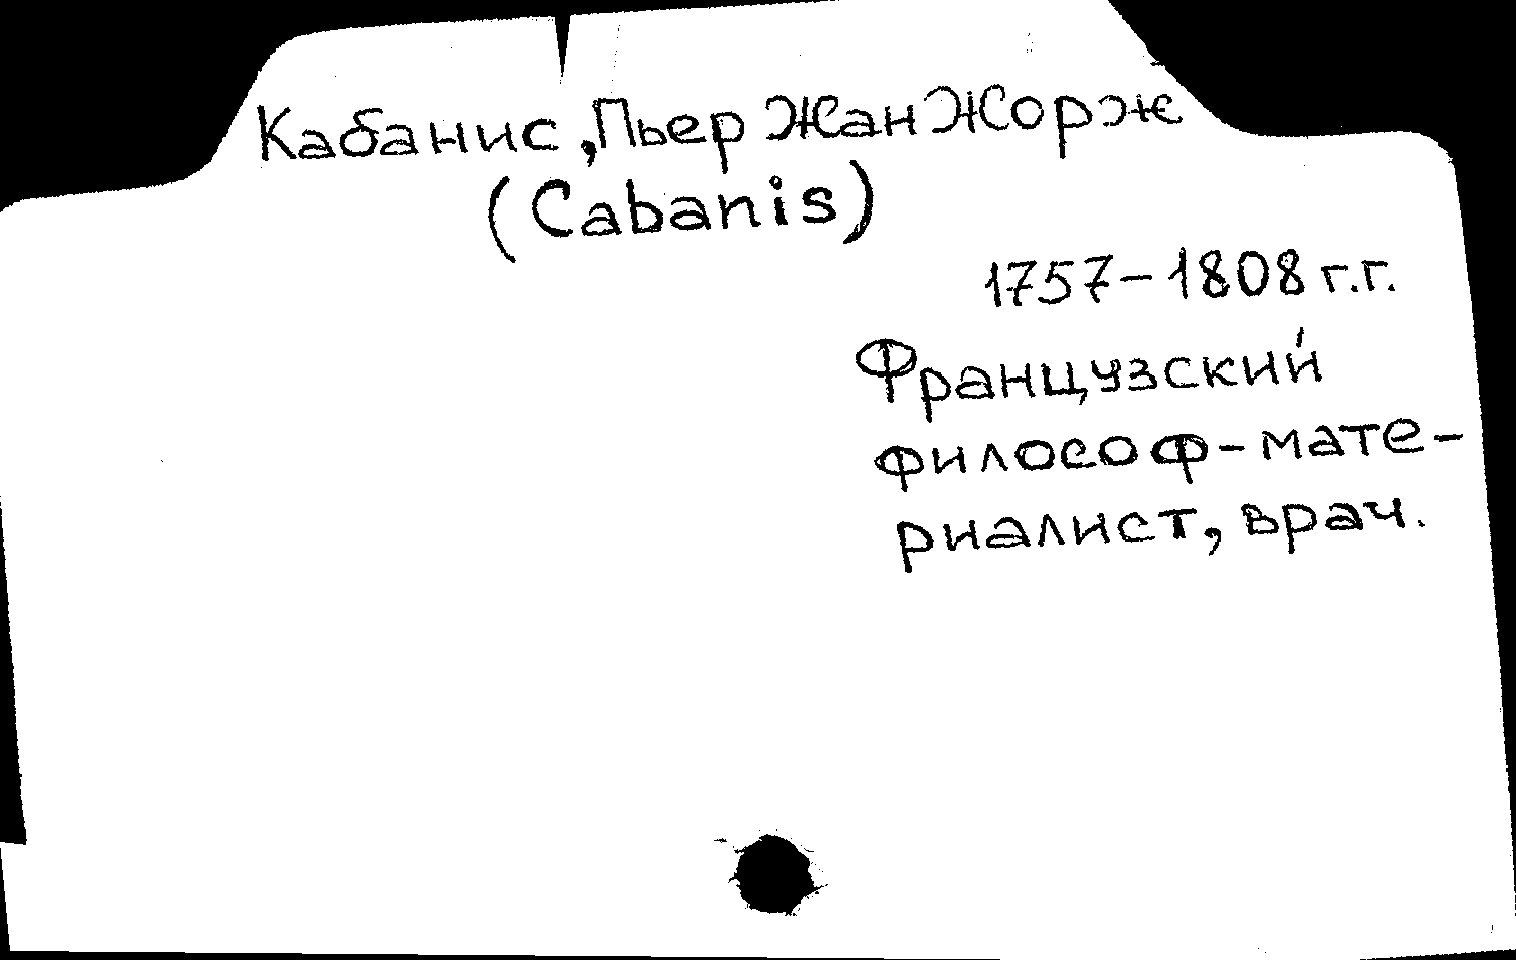 Кабанис, Пьер Жан Жорж
(Cabanis)
1757-1808 г.г.
Французский
философ-мате-
риалист, врач.